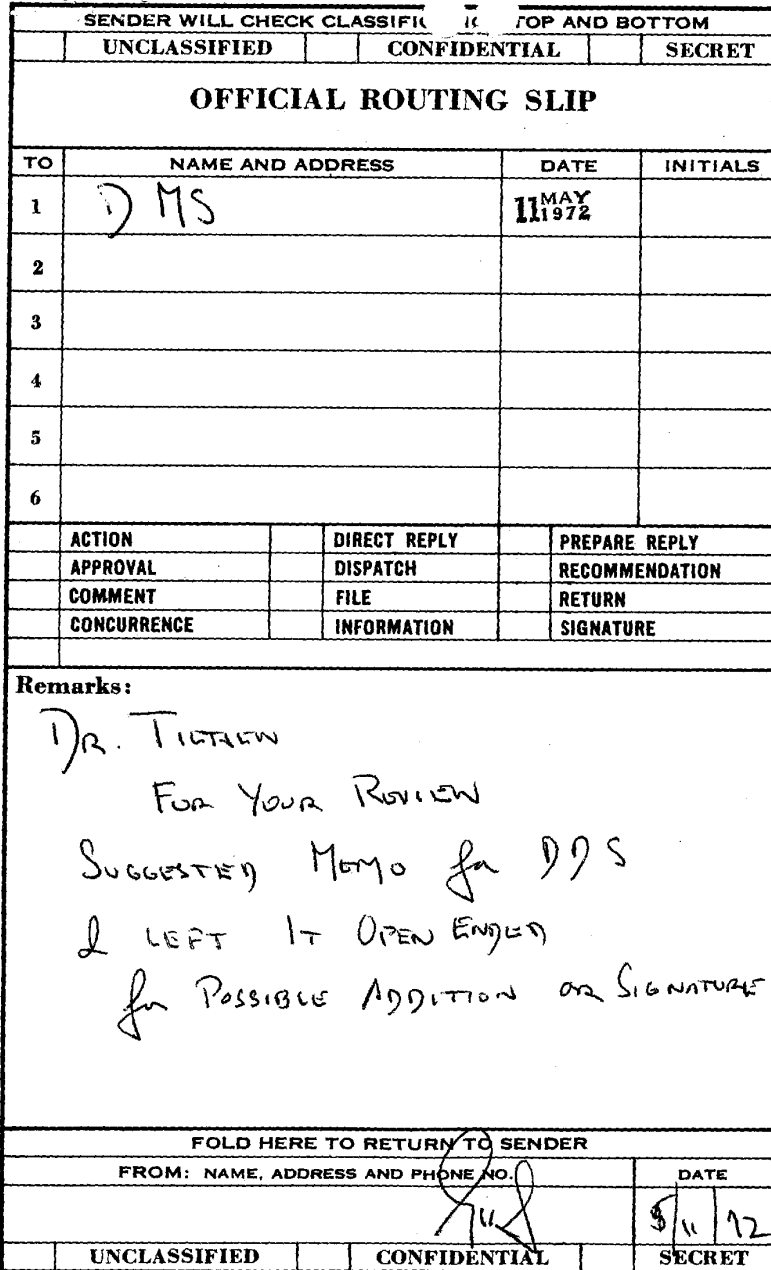 SENDER WILL CHECK TOP AND BOTTOM
UNCLASSIFIED CONFIDENTIAL SECRET
OFFICIAL ROUTING SLIP
TO NAME AND ADDRESS DATE INITIALS
1 DMS 11 MAY 1972
2
3
4
5
6
ACTION DIRECT REPLY PREPARE REPLY
APPROVAL DISPATCH RECOMMENDATION
COMMENT FILE RETURN
CONCURRENCE INFORMATION SIGNATURE
Remarks:
DR.
FOR YOUR REVIEW
SUGGESTED MEMO for DDS
I LEFT IT OPEN ENDED
for POSSIBLE ADDITION OR SIGNATURE
FOLD HERE TO RETURN TO SENDER
FROM: NAME, ADDRESS AND PHONE NO. DATE
5/11/72
UNCLASSIFIED CONFIDENTIAL SECRET